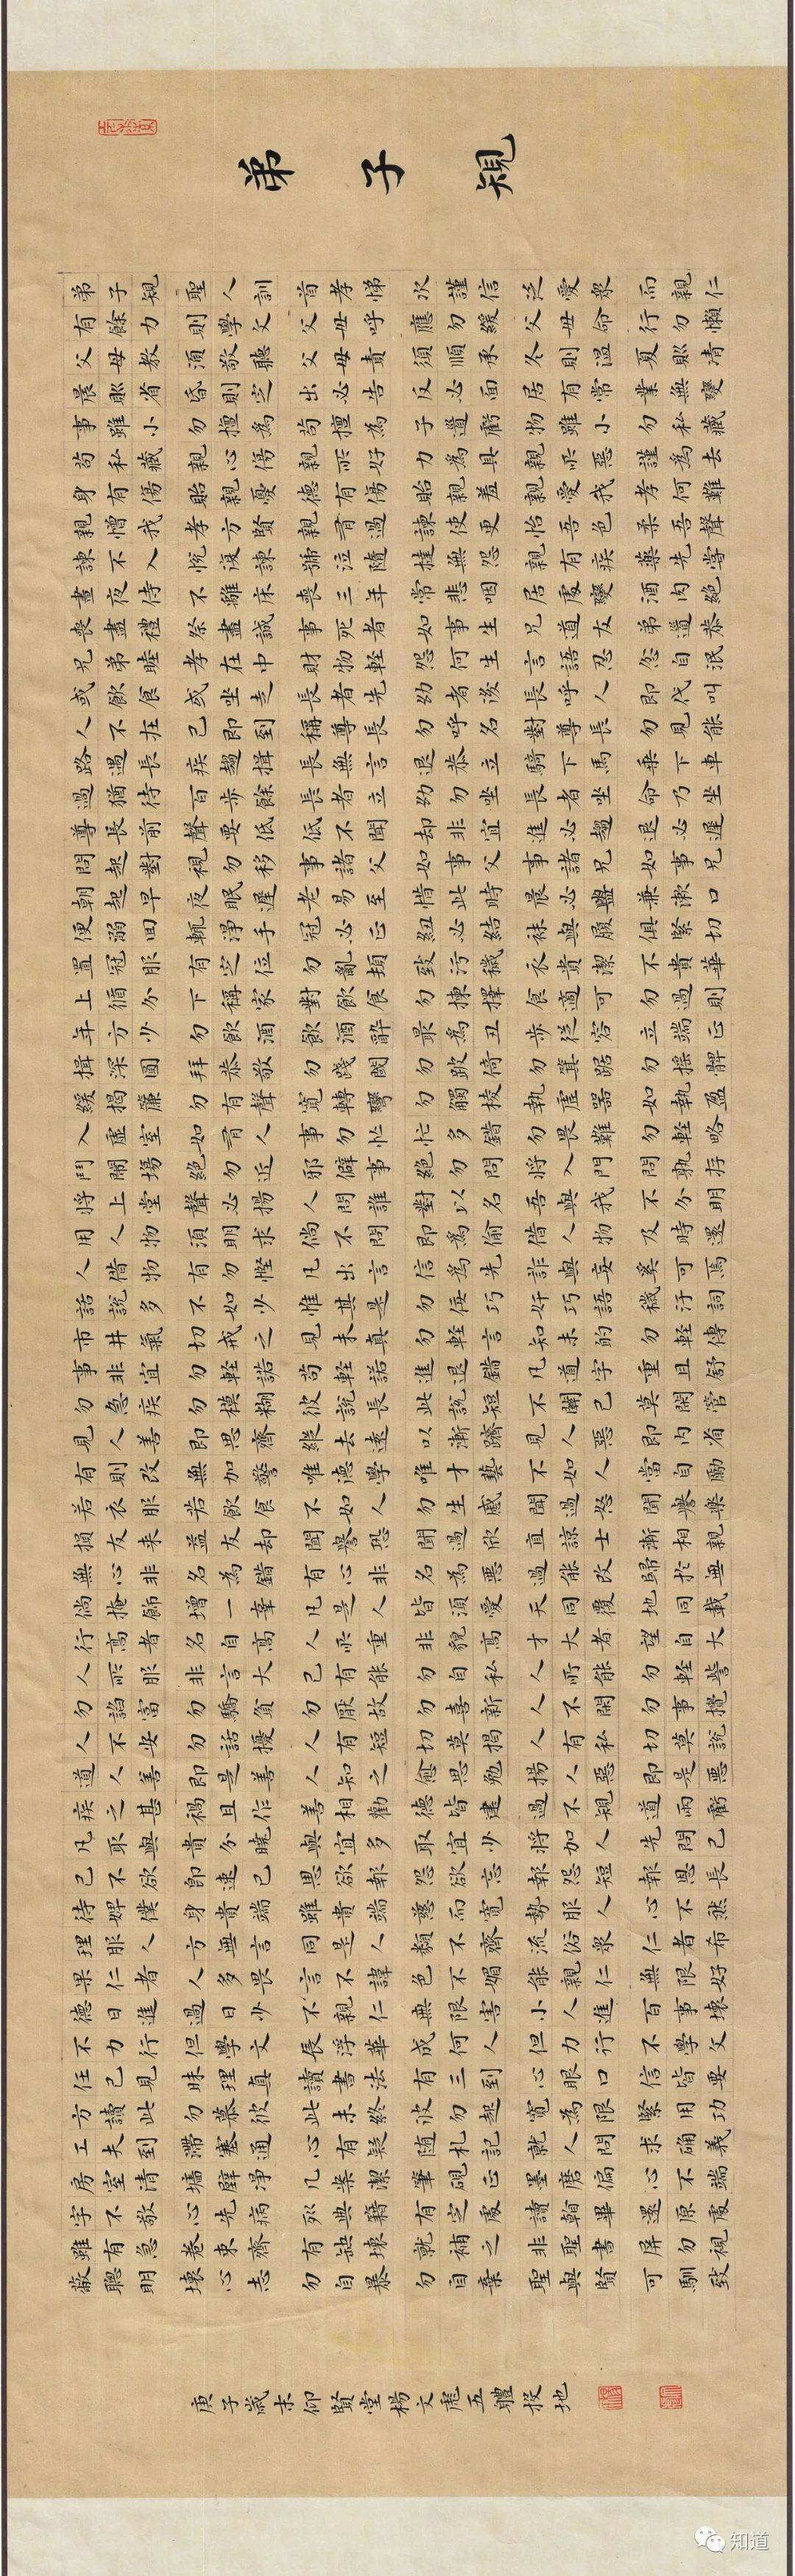 弟子規
弟子規聖人訓首孝悌次謹信泛愛眾而親仁
有餘力則學文父母呼應勿緩父母命行勿懶
父母教須敬聽父母責須順承冬則溫夏則凊
晨則省昏則定出必告反必面居有常業無變
事雖小勿擅為苟擅為子道虧物雖小勿私藏
苟私藏親心傷親所好力為具親所惡謹為去
身有傷貽親憂德有傷貽親羞親愛我孝何難
親憎我孝方賢親有過諫使更怡吾色柔吾聲
諫不入悅復諫號泣隨撻無怨親有疾藥先嘗
晝夜侍不離床喪三年常悲咽居處變酒肉絕
喪盡禮祭盡誠事死者如事生兄道友弟道恭
兄弟睦孝在中財物輕怨何生言語忍忿自泯
或飲食或坐走長者先幼者後長呼人即代叫
人不在己即到稱尊長勿呼名對尊長勿見能
路遇長疾趨揖長無言退恭立騎下馬乘下車
過猶待百步餘長者立幼勿坐長者坐命乃坐
尊長前聲要低低不聞却非宜進必趨退必遲
問起對視勿移事諸父如事父事諸兄如事兄
朝起早夜眠遲老易至惜此時晨必盥兼漱口
便溺回輒淨手冠必正紐必結襪與履俱緊切
置冠服有定位勿亂頓致污穢衣貴潔不貴華
上循分下稱家對飲食勿揀擇食適可勿過則
年方少勿飲酒飲酒醉最為丑步從容立端正
揖深圓拜恭敬勿踐閾勿跛倚勿箕踞勿搖髀
緩揭簾勿有聲寬轉彎勿觸棱執虛器如執盈
入虛室如有人事勿忙忙多錯勿畏難勿輕略
鬥鬧場絕勿近邪僻事絕勿問將入門問孰存
將上堂聲必揚人問誰對以名吾與我不分明
用人物須明求倘不問即為偷借人物及時還
人借物有勿慳凡出言信為先詐與妄奚可焉
話說多不如少惟其是勿佞巧奸巧語穢汙詞
市井氣切戒之見未真勿輕言知未的勿輕傳
事非宜勿輕諾苟輕諾進退錯凡道字重且舒
勿急疾勿模糊彼說長此說短不關己莫閑管
見人善即思齊縱去遠以漸躋見人惡即內省
有則改無加警唯德學唯才藝不如人當自勵
若衣服若飲食不如人勿生慼聞過怒聞譽樂
損友來益友却聞譽恐聞過欣直諒士漸相親
無心非名為錯有心非名為惡過能改歸於無
倘掩飾增一辜凡是人皆須愛天同覆地同載
行高者名自高人所重非貌高才大者望自大
人所服非言大己有能勿自私人所能勿輕訾
勿諂富勿驕貧勿厭故勿喜新人不閑勿事攪
人不安勿話擾人有短切莫揭人有私切莫說
道人善即是善人知之愈思勉揚人惡即是惡
疾之甚禍且作善相勸德皆建過不規道兩虧
凡取與貴分曉與宜多取宜少將加人先問己
己不欲即速已恩欲報怨欲忘報怨短報恩長
待婢僕身貴端雖貴端慈而寬勢服人心不然
理服人方無言同是人類不齊流俗眾仁者希
果仁者人多畏言不諱色不媚能親仁無限好
德日進過日少不親仁無限害小人進百事壞
不力行但學文長浮華成何人但力行不學文
任己見昧理真讀書法有三到心眼口信皆要
方讀此勿慕彼此未終彼勿起寬為限緊用功
工夫到滯塞通心有疑隨札記就人問求確義
房室清墻壁淨几案潔筆硯正墨磨偏心不端
字不敬心先病列典籍有定處讀看畢還原處
雖有急卷束齊有缺壞就補之非聖書屏勿視
蔽聰明壞心志勿自暴勿自棄聖與賢可馴致
庚子歲末仰賢堂楊文彪五體投地
知道